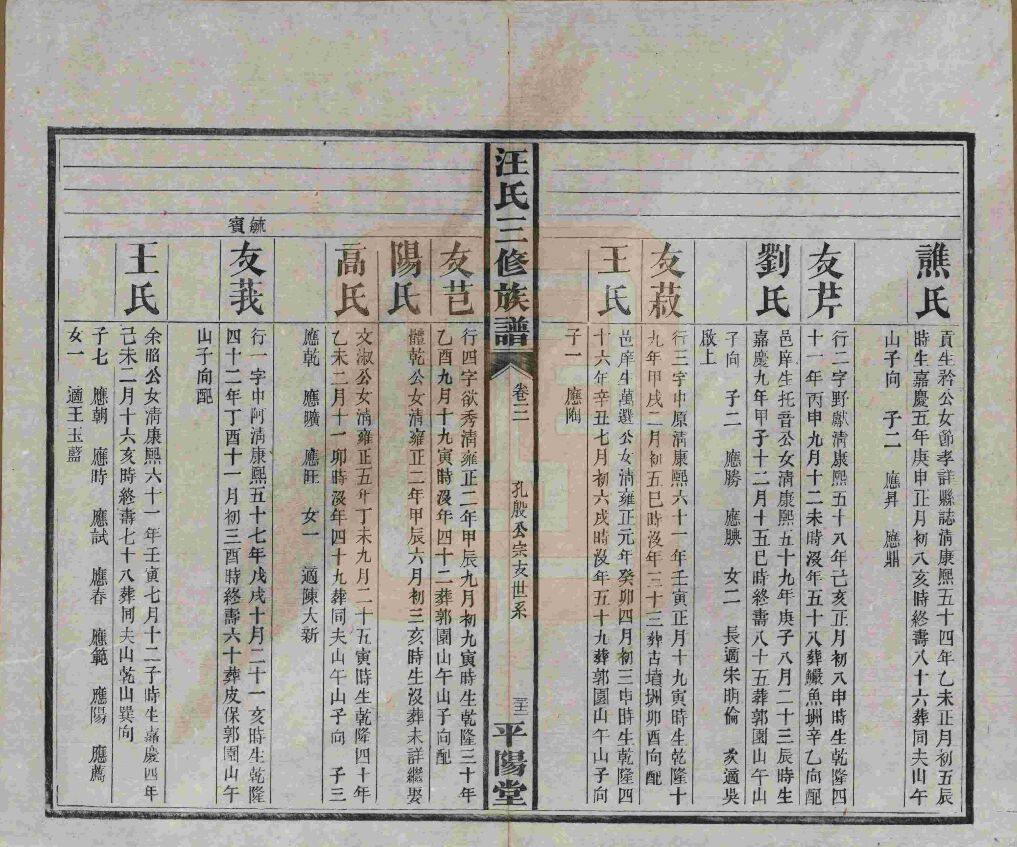 譙氏
貢生衿公女節孝詳縣誌清康熙五十四年乙未正月初五辰
時生嘉慶五年庚申正月初八亥時終壽八十六葬同夫山午
山子向 子二 應昇 應鼎
友芹
行二字野獻清康熙五十八年己亥正月初八申時生乾隆四
十一年丙申九月十二未時沒年五十八葬鱖魚坵辛乙向配
劉氏
邑庠生托音公女清康熙五十九年庚子八月二十三辰時生
嘉慶九年甲子十二月十五巳時終壽八十五葬郭園山午山
子向 子二 應勝 應腴 女二 長適朱明倫 次適吳
啟上
友菽
行三字中原清康熙六十一年壬寅正月十九寅時生乾隆十
九年甲戌二月初五巳時沒年三十三葬古墳坵卯酉向配
王氏
邑庠生萬選公女清雍正元年癸卯四月初三申時生乾隆四
十六年辛丑七月初六戌時沒年五十九葬郭園山午山子向
子一 應陶
汪氏三修族譜
卷三
孔殷公宗友世系
平陽堂
友芑
行四字欲秀清雍正二年甲辰九月初九寅時生乾隆三十年
乙酉九月十九寅時沒年四十二葬郭園山午山子向配
陽氏
體乾公女清雍正二年甲辰六月初三亥時生沒葬未詳繼娶
高氏
文淑公女清雍正五年丁未九月二十五寅時生乾隆四十年
乙未二月十一卯時沒年四十九葬同夫山午山子向 子三
應乾 應曠 應旺 女一 適陳大新
毓賓
友莪
行一字中阿清康熙五十七年戊戌十月二十一亥時生乾隆
四十二年丁酉十一月初三酉時終壽六十葬皮保郭園山午
山子向配
王氏
余昭公女清康熙六十一年壬寅七月十二子時生嘉慶四年
己未二月十六亥時終壽七十八葬同夫山乾山巽向
子七 應朝 應時 應試 應春 應範 應陽 應薦
女一 適王玉藍